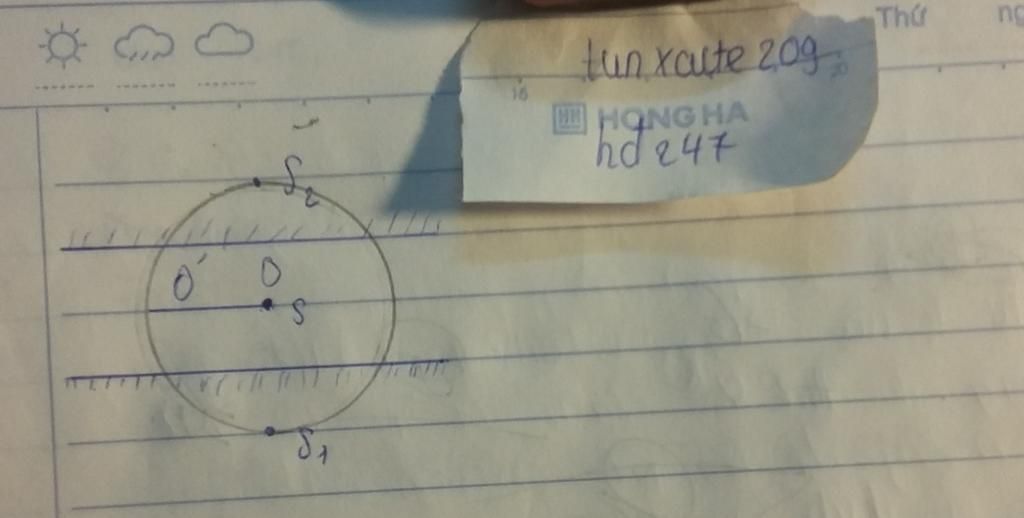 Thứ
tun xcute 209
20
16
HH HONG HA
hd 247
S₂
O' O
S
S₁